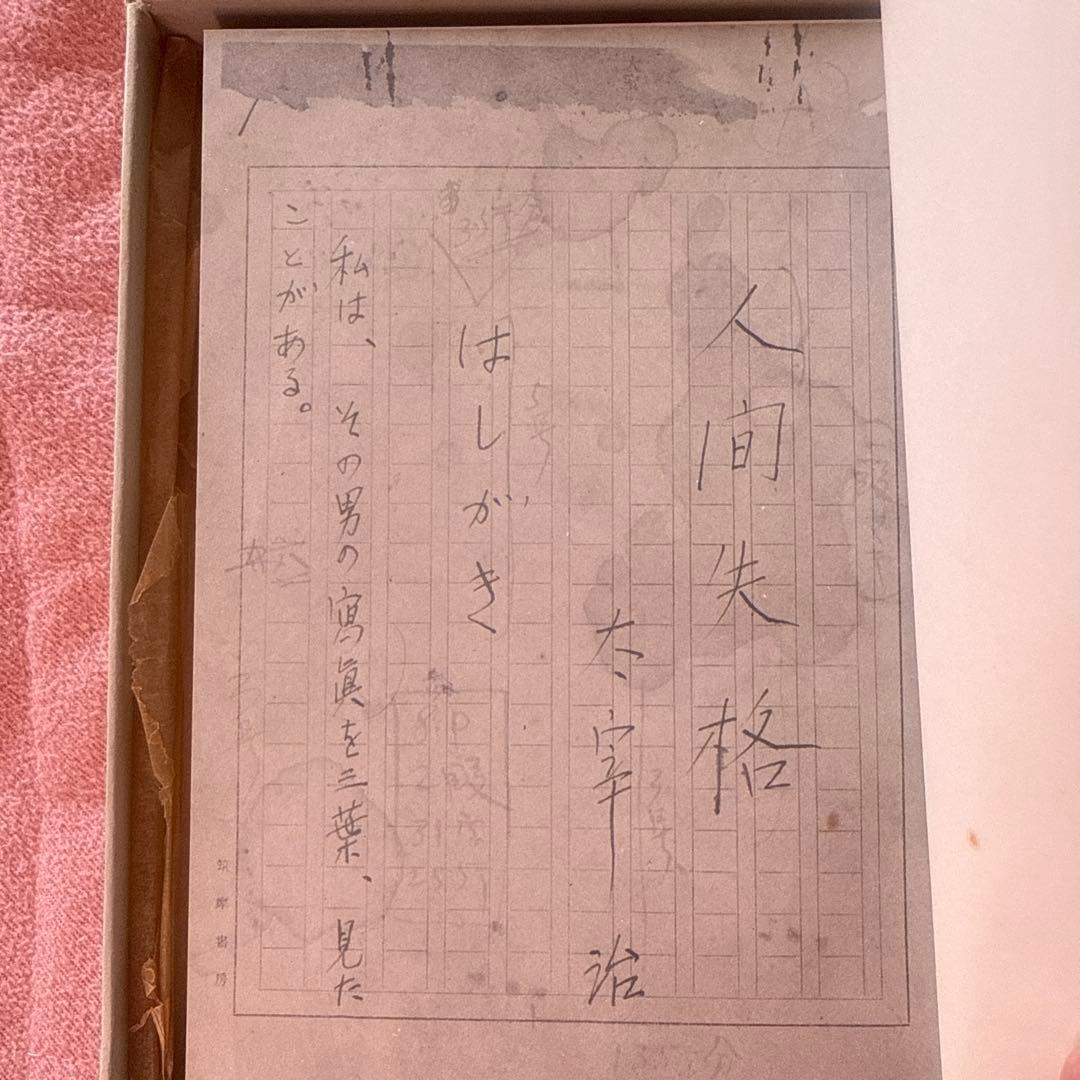 人間失格
太宰治
はしがき
私は、その男の寫眞を三葉、見た
ことがある。
筑摩書房